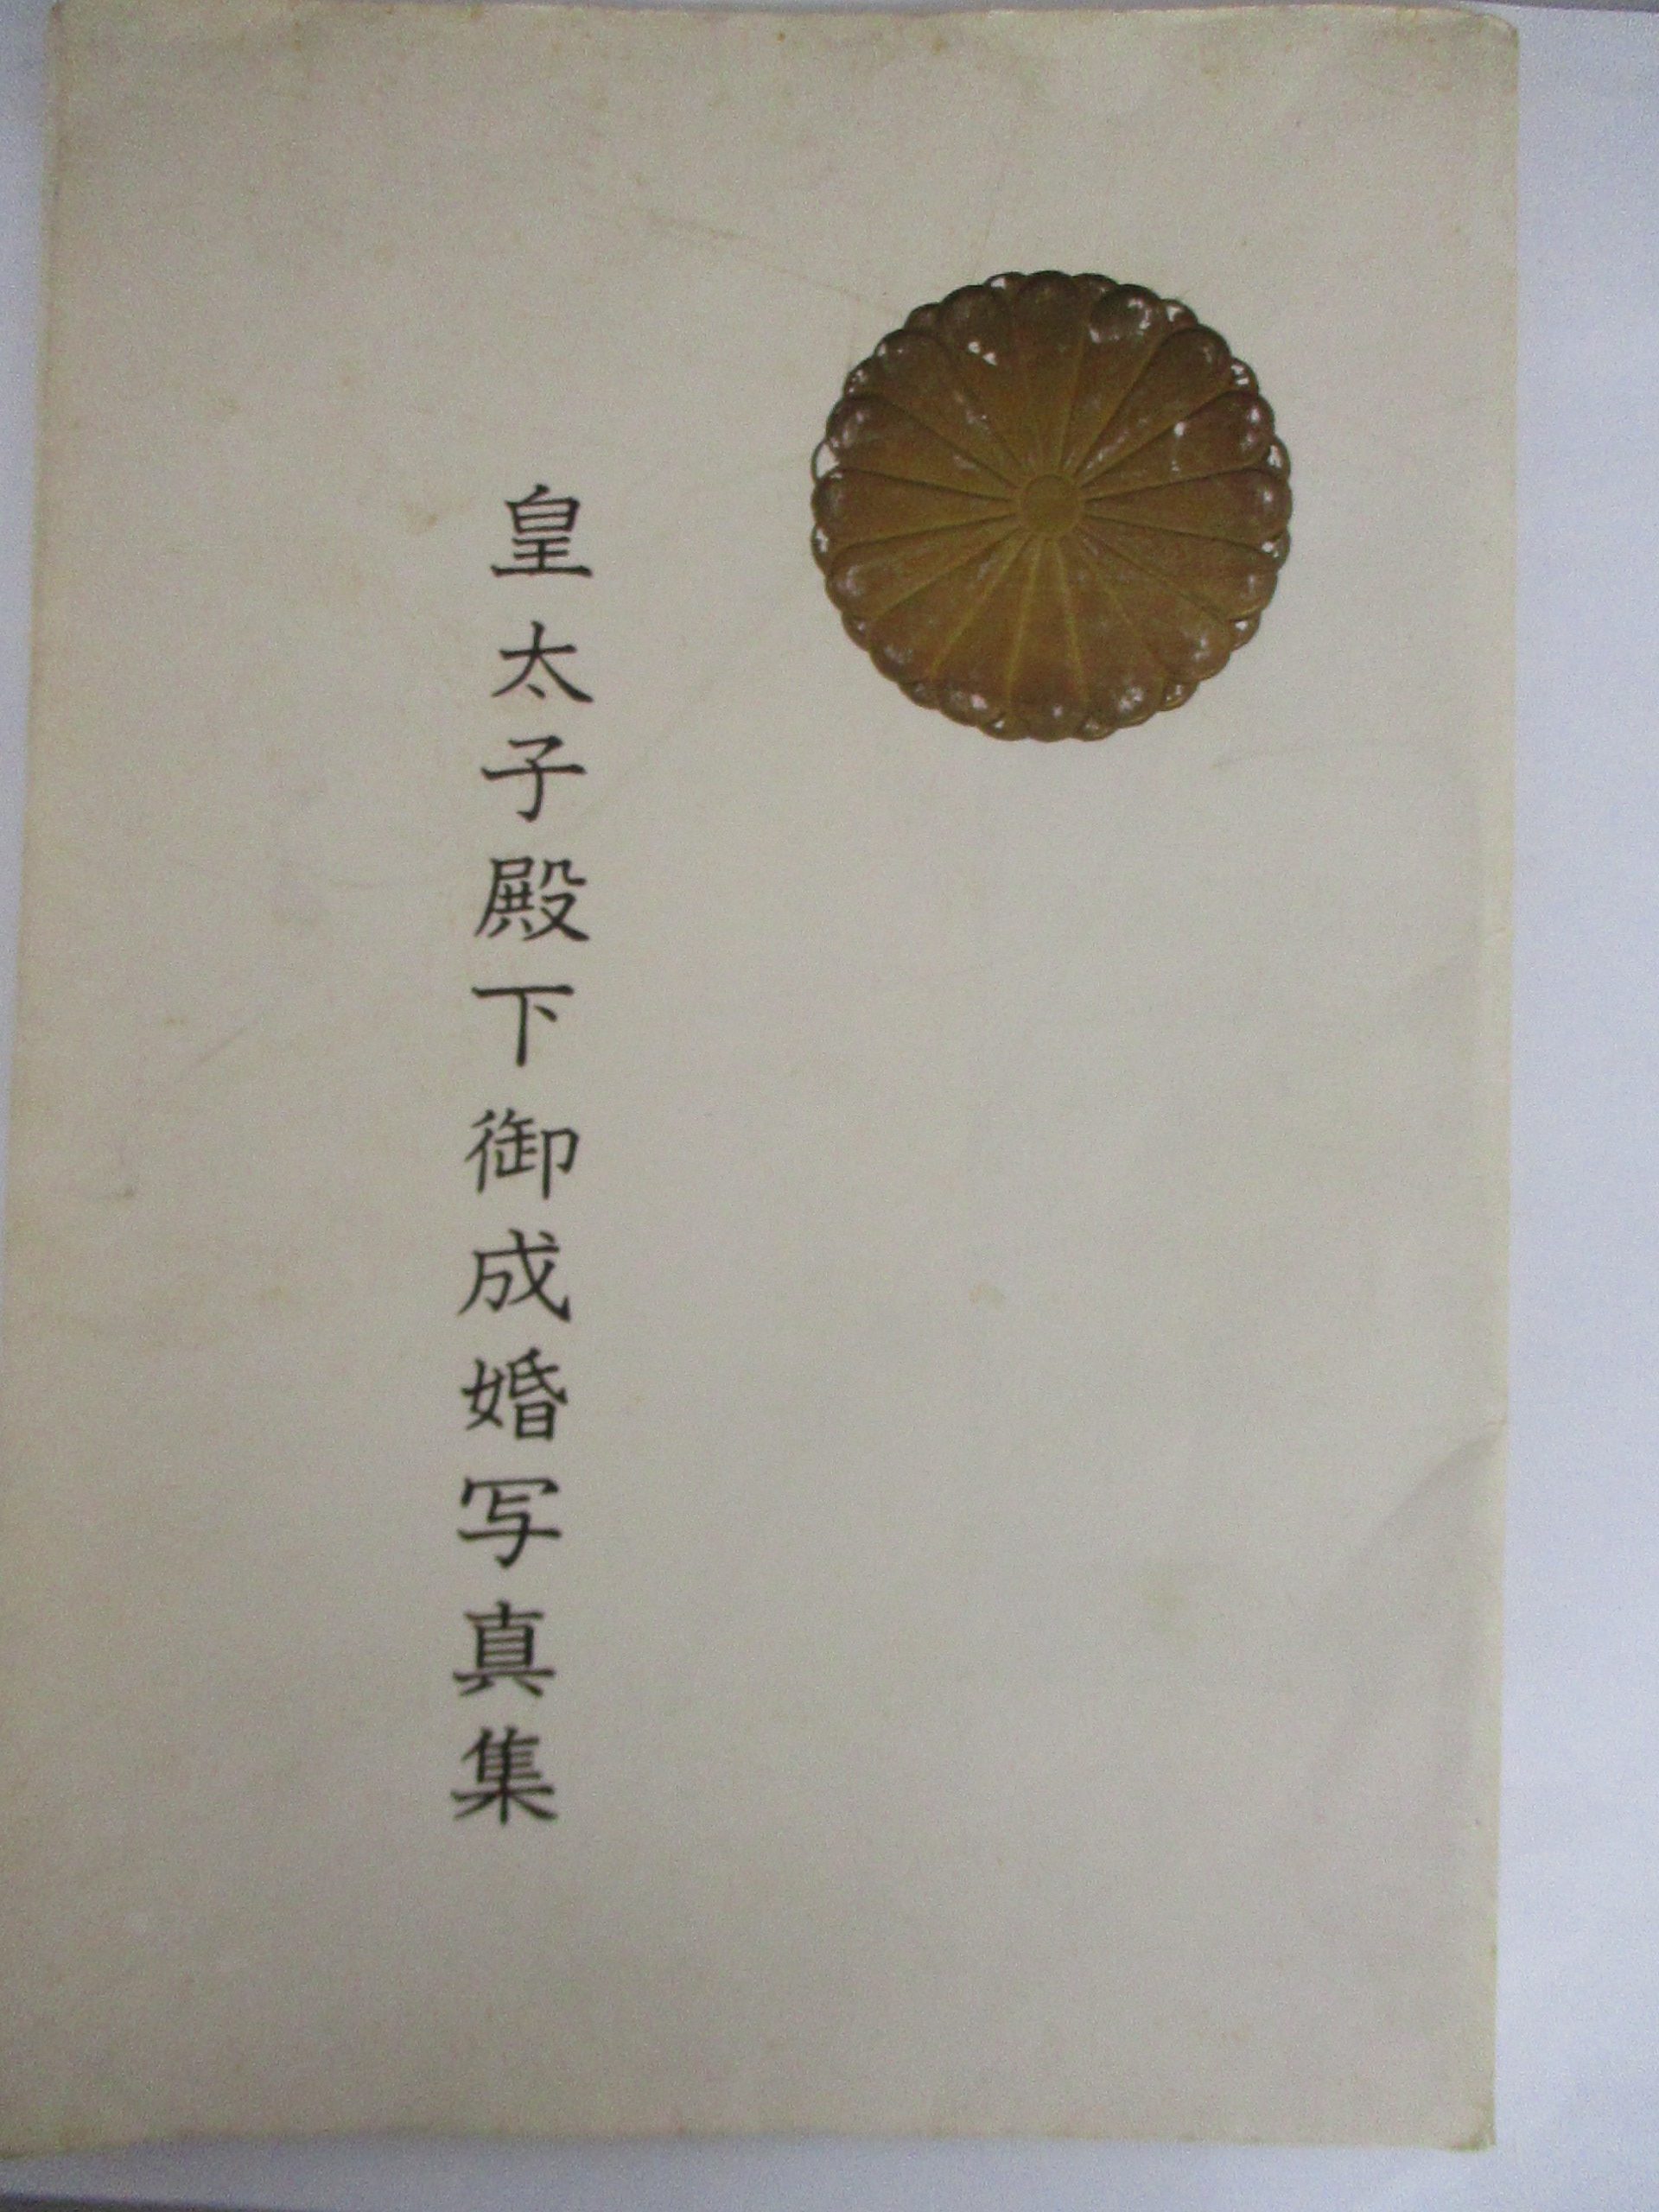 皇太子殿下御成婚写真集